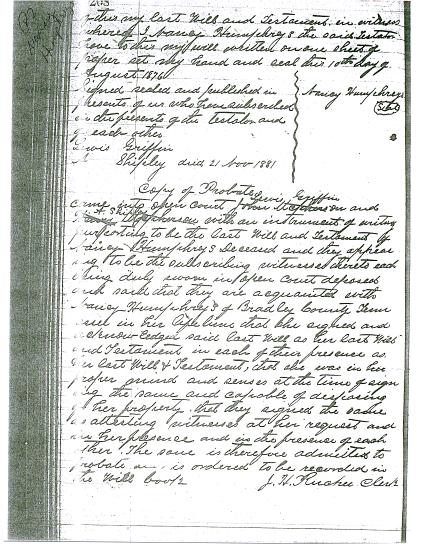 203
this my last Will and Testament in witness
whereof I Nancy Humphreys the said Testator
have to this my will written on one sheet of
paper set my hand and seal this 10th day of
August 1876
Signed sealed and published in
presents of us who have subscribed
in the presents of the testator and
of each other
Nancy Humphreys
Seal
Lewis Griffin
Shipley died 21 Nov 1881
Copy of Probate
Lewis Griffin
came into open Court John and
Shipley with an instrument of writing
purporting to be the last Will and Testament of
Nancy Humphreys Deceased and they appear
ing to be the subscribing witnesses thereto each
being duly sworn in open Court deposed
and said that they are acquainted with
Nancy Humphreys of Bradley County Tenn
in her lifetime that she signed and
acknowledged said last Will as her last Will
and Testament in each of their presence as
her last Will & Testament, that she was in her
proper mind and senses at the time of sign
ing the same and capable of disposing
of her property. that they signed the same
as attesting witnesses at her request and
in her presence and in the presence of each
other. The same is therefore admitted to
probate is ordered to be recorded in
the Will book
J. H. Hughes Clerk